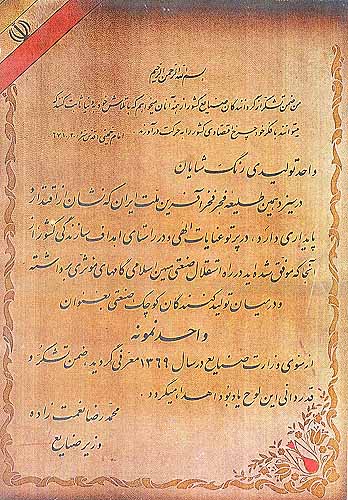 بسم الله الرحمن الرحیم
من ضمن تشکر از گردانندگان صنایع کشور از همه آنان میخواهم که با تلاش خود بر دنیا ثابت کنند که
میتوانند با فکر خود چرخ اقتصادی کشور را به حرکت درآورند.
امام خمینی
واحد تولیدی رنگ شایان
در سیزدهمین طلیعه فجر فخرآفرین ملت ایران که نشان از اقتدار و
پایداری دارد، در پرتو عنایات الهی و در راستای اهداف سازندگی کشور از
آنجا که موفق شده اید در راه استقلال صنعتی میهن اسلامی گامهای موثری برداشته
و در میان تولید کنندگان کوچک صنعتی بعنوان
واحد نمونه
از سوی وزارت صنایع در سال ۱۳۶۹ معرفی گردید، ضمن تشکر و
قدردانی این لوح یادبود اهدا میگردد.
محمدرضا نعمت زاده
وزیر صنایع